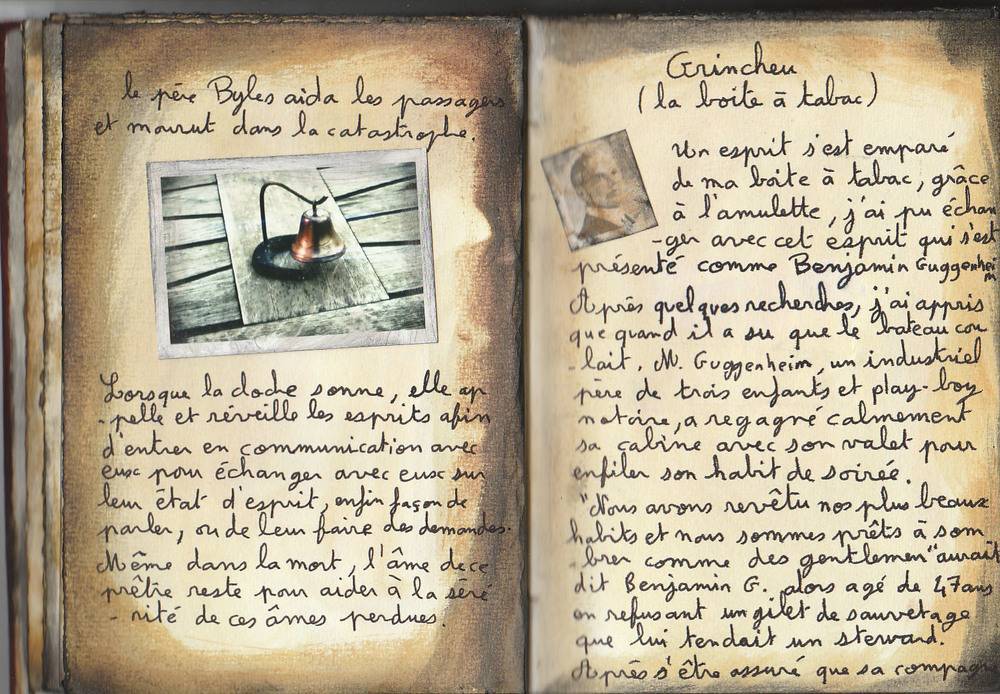 le père Byles aida les passagers
et mourut dans la catastrophe.
Lorsque la cloche sonne, elle ap
-pelle et réveille les esprits afin
d'entrer en communication avec
eux pour échanger avec eux sur
leur état d'esprit, enfin façon de
parler, ou de leur faire des demandes.
Même dans la mort, l'âme de ce
prêtre reste pour aider à la séré
-nité de ces âmes perdues.
Grincheu
(la boite à tabac)
Un esprit s'est emparé
de ma boite à tabac, grâce
à l'amulette, j'ai pu échan
-ger avec cet esprit qui s'est
présenté comme Benjamin Guggenheim
Après quelques recherches, j'ai appris
que quand il a su que le bateau cou
-lait, M. Guggenheim, un industriel
père de trois enfants et play-boy
notoire, a regagné calmement
sa cabine avec son valet pour
enfiler son habit de soirée.
"Nous avons revêtu nos plus beaux
habits et nous sommes prêts à som
-brer comme des gentlemen" aurait
dit Benjamin G. alors agé de 47 ans
en refusant un gilet de sauvetage
que lui tendait un steward.
Après s'être assuré que sa compagn